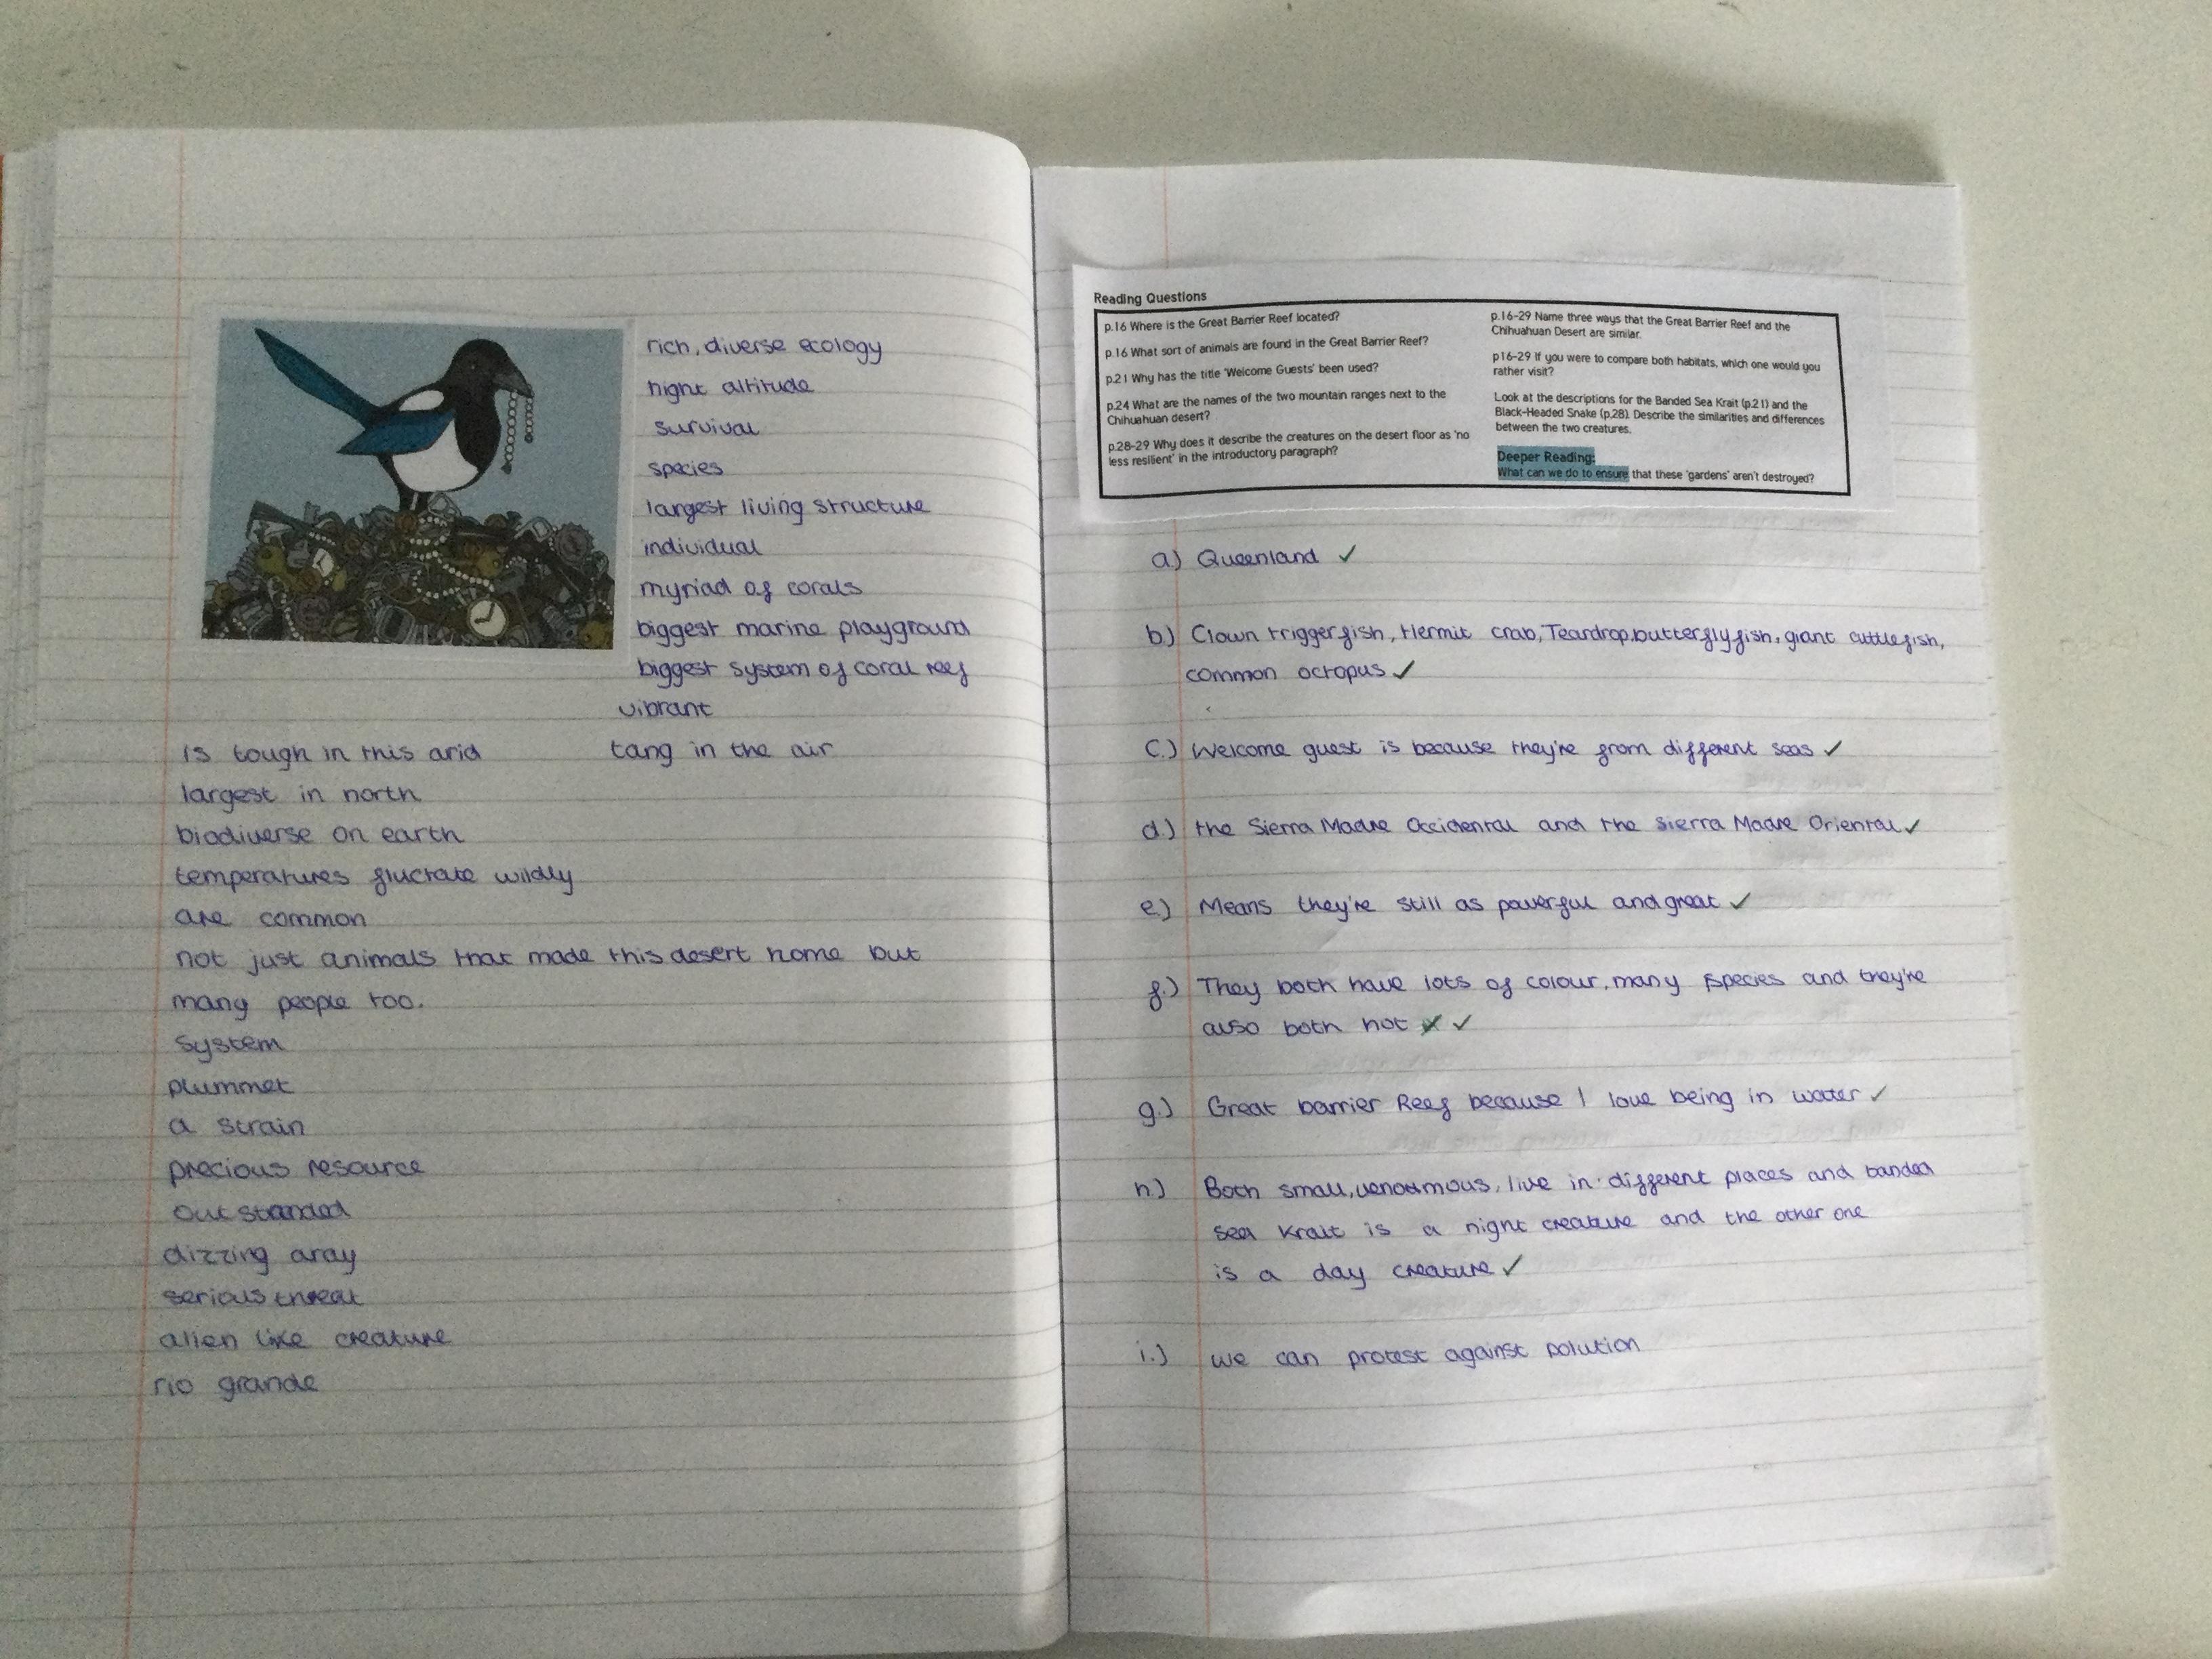 rich, diverse ecology
hight altitude
survival
species
largest living structure
individual
myriad of corals
biggest marine playground
biggest system of coral reef
vibrant
tang in the air
is tough in this arid
largest in north
biodiverse on earth
temperatures fluctate wildly
are common
not just animals that made this desert home but
many people too.
system
plummet
a strain
precious resource
out standed
dizzing aray
serious threat
alien like creature
rio grande
Reading Questions
p.16 Where is the Great Barrier Reef located?
p.16 What sort of animals are found in the Great Barrier Reef?
p.21 Why has the title 'Welcome Guests' been used?
p.24 What are the names of the two mountain ranges next to the
Chihuahuan desert?
p.28-29 Why does it describe the creatures on the desert floor as 'no
less resilient' in the introductory paragraph?
p.16-29 Name three ways that the Great Barrier Reef and the
Chihuahuan Desert are similar.
p16-29 If you were to compare both habitats, which one would you
rather visit?
Look at the descriptions for the Banded Sea Krait (p.21) and the
Black-Headed Snake (p.28). Describe the similarities and differences
between the two creatures.
Deeper Reading:
What can we do to ensure that these 'gardens' aren't destroyed?
a.) Queenland ✓
b.) Clown triggerfish, Hermit crab, Teardrop butterflyfish, giant cuttlefish,
common octopus ✓
c.) Welcome guest is because they're from different seas ✓
d.) the Sierra Madre Occidental and the Sierra Madre Oriental ✓
e.) Means they're still as powerful and great ✓
f.) They both have lots of colour, many species and they're
also both hot ✓
g.) Great barrier Reef because I love being in water ✓
h.) Both small, venommous, live in different places and banded
sea krait is a night creature and the other one
is a day creature ✓
i.) we can protest against polution